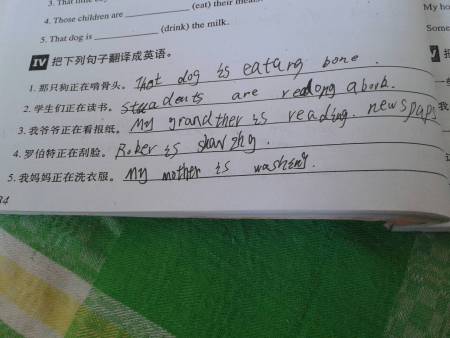 3. That little
4. Those children are (eat) their meals.
5. That dog is (drink) the milk.
My ho
Some
IV 把下列句子翻译成英语。
1. 那只狗正在啃骨头。 That dog is eatarg bone.
2. 学生们正在读书。 Stuadents are redong abook.
3. 我爷爷正在看报纸。 My grandther is reading. newspaps
4. 罗伯特正在刮脸。 Rober is shaving.
5. 我妈妈正在洗衣服。 My mother is washeng.
我